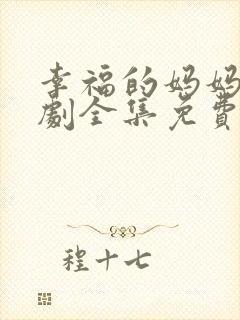 幸福的妈妈
劇全集免費
程十七